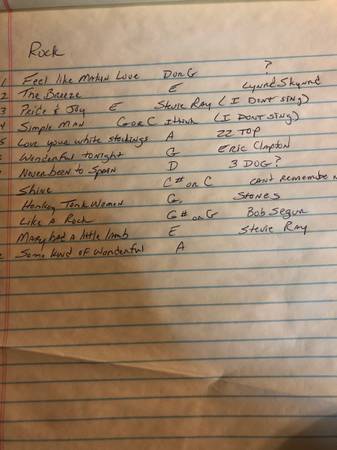 Rock
1 Feel like Makin Love D or G ?
2 The Breeze E Lynnrd Skynnrd
3 Pride & Joy E Stevie Ray (I Dont sing)
4 Simple MAN G or C I think (I Dont sing)
5 Love your white stockings A ZZ TOP
6 Wonderful tonight G Eric Clapton
7 Never been to Spain D 3 DOG?
Shine C# or C can't remember
Honkey Tonk Women G. Stones
Like A Rock G# or G Bob Segur
Mary had a little lamb E Stevie Ray
Some kind of Wonderful A